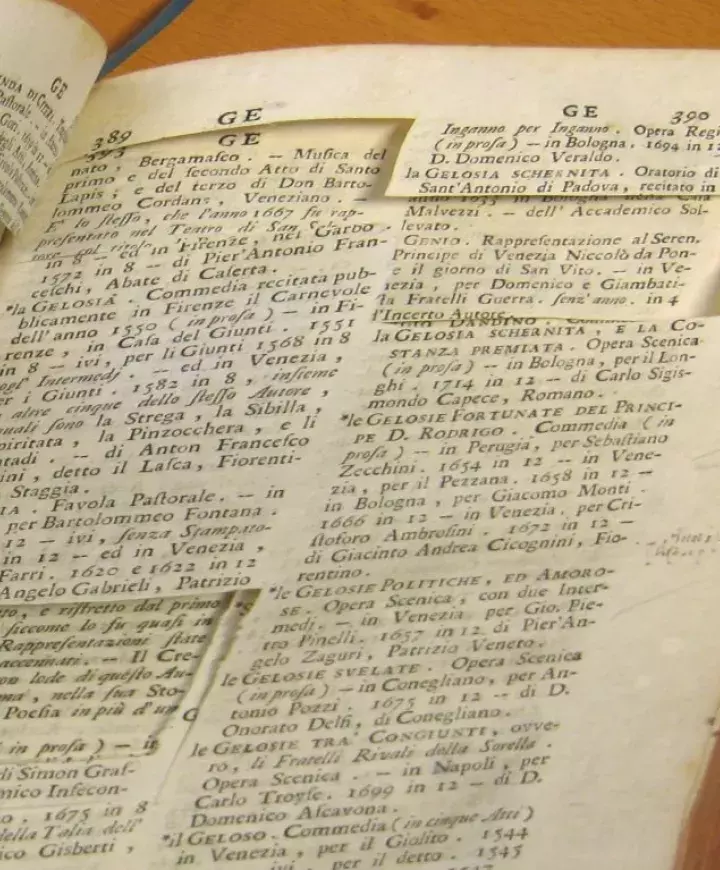 GE
NDA DI CITE
Pastorale
GE
389
GE
nato, Bergamasco. — Musica del
primo e del secondo Atto di Santo
Lapis, e del terzo di Don Barto-
lommeo Cordans, Veneziano. —
E' lo stesso, che l'anno 1667 fu rap-
presentato nel Teatro di San
in 8 — ed in Firenze, nel Garbo.
1572 in 8 — di Pier'Antonio Fran-
ceschi, Abate di Caserta.
*la GELOSIA. Commedia recitata pub-
blicamente in Firenze il Carnevale
dell'anno 1550 (in prosa) — in Fi-
renze, in Casa del Giunti. 1551
in 8 — ivi, per li Giunti 1568 in 8
Intermedj. — ed in Venezia,
er i Giunti. 1582 in 8, insieme
altre cinque dello stesso Autore,
quali sono la Strega, la Sibilla,
piritata, la Pinzocchera, e li
tadi. — di Anton Francesco
ini, detto il Lasca, Fiorenti-
Staggia.
IA. Favola Pastorale. — in
per Bartolommeo Fontana.
12 — ivi, senza Stampato-
in 12 — ed in Venezia,
Farri. 1620 e 1622 in 12
Angelo Gabrieli, Patrizio
to, e ristretto dal primo
siccome lo fu quasi in
Rappresentazioni state
accennati. — Il Cre-
on lode di questo Au-
ma, nella sua Sto-
Poesia in più d'un
in prosa) — in
di Simon Graf-
mico Infecon-
o. 1675 in 8
della Talia dell'
ico Gisberti,
GE
390
Inganno per Inganno. Opera Regi
(in prosa) — in Bologna, 1694 in 12
D. Domenico Veraldo.
la GELOSIA SCHERNITA. Oratorio di
Sant'Antonio di Padova, recitato in
anno 1655 in Bologna nella Casa
Malvezzi. — dell' Accademico Sol-
levato.
GENIO. Rappresentazione al Seren.
Principe di Venezia Niccolò da Pon-
e il giorno di San Vito. — in Ve-
nezia, per Domenico e Giambati-
sta Fratelli Guerra. senz'anno. in 4
l'Incerto Autore.
DANDINO.
la GELOSIA SCHERNITA, E LA CO-
STANZA PREMIATA. Opera Scenica
(in prosa) — in Bologna, per il Lon-
ghi. 1714 in 12 — di Carlo Sigis-
mondo Capece, Romano.
*le GELOSIE FORTUNATE DEL PRINCI-
PE D. RODRIGO. Commedia (in
prosa) — in Perugia, per Sebastiano
Zecchini. 1654 in 12 — in Vene-
zia, per il Pezzana. 1658 in 12 —
in Bologna, per Giacomo Monti.
1666 in 12 — in Venezia. per Cri-
stoforo Ambrosini. 1672 in 12 —
di Giacinto Andrea Cicognini, Fio-
rentino.
*le GELOSIE POLITICHE, ED AMORO-
SE. Opera Scenica, con due Inter-
medj. — in Venezia per Gio. Pie-
tro Pinelli. 1657 in 12 di Pier'An-
gelo Zaguri, Patrizio Veneto.
le GELOSIE SVELATE. Opera Scenica
(in prosa) — in Conegliano, per An-
tonio Pozzi. 1675 in 12 — di D.
Onorato Delfi, di Conegliano.
le GELOSIE TRA' CONGIUNTI, ovve-
ro, li Fratelli Rivali della Sorella.
Opera Scenica. — in Napoli, per
Carlo Troyse. 1699 in 12 — di D.
Domenico Ascavona.
*il GELOSO. Commedia (in cinque Atti)
in Venezia, per il Giolito. 1544
ivi, per il detto. 1545